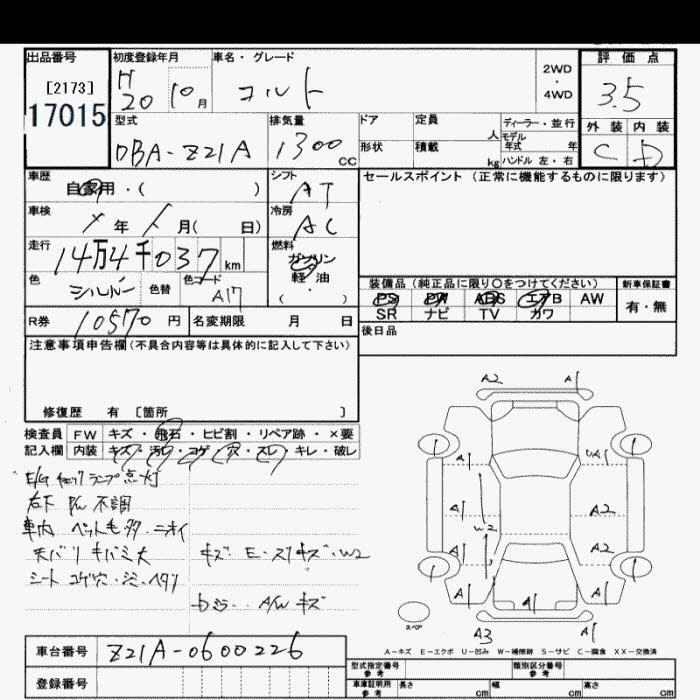 出品番号 初度登録年月 車名・グレード 評価点
[2173] H20 10月 コルト 2WD・4WD 3.5
17015 外装 内装
C D
型式 排気量 ドア 定員 人 ディーラー・並行
DBA-Z21A 1300cc 形状 積載 kg モデル年式 年
ハンドル 左・右
車歴 シフト セールスポイント(正常に機能するものに限ります)
自家用・( ) AT
車検 冷房
年 月( 日) AC
走行 燃料
14万4千037km ガソリン
軽油
( ・ )
色 色替 色コード
シルバー A17
装備品(純正品に限り○をつけてください) 新車保証書
PS PW ABS エアB AW 有・無
SR ナビ TV カワ
R券 10570円 名変期限 月 日 後日品
注意事項申告欄(不具合内容等は具体的に記入して下さい)
修復歴 有 〔箇所 〕
検査員 FW キズ・飛石・ヒビ割・リペア跡・×要
記入欄 内装 キズ・汚レ・コゲ・穴・スレ・キレ・破レ
E/G チェックランプ点灯
右下 P/W 不調
車内 ペット毛多・ニオイ
天バリ キバミ大 キズ・E・スリキズ・W2
シート コゲ穴・シミ・ヘタリ
A/W キズ
A2 A1
A1 UA1
A1 A2
W2
A1 A2
A1 A1 A1
A3 A1
1 1
1 1
スペア
A-キズ E-エクボ U-凹み W-補修跡 S-サビ C-腐食 XX-交換済
車台番号 Z21A-0600226
登録番号
型式指定番号 参考 類別区分番号
車庫証明用 参考 長さ cm 幅 cm 高さ cm